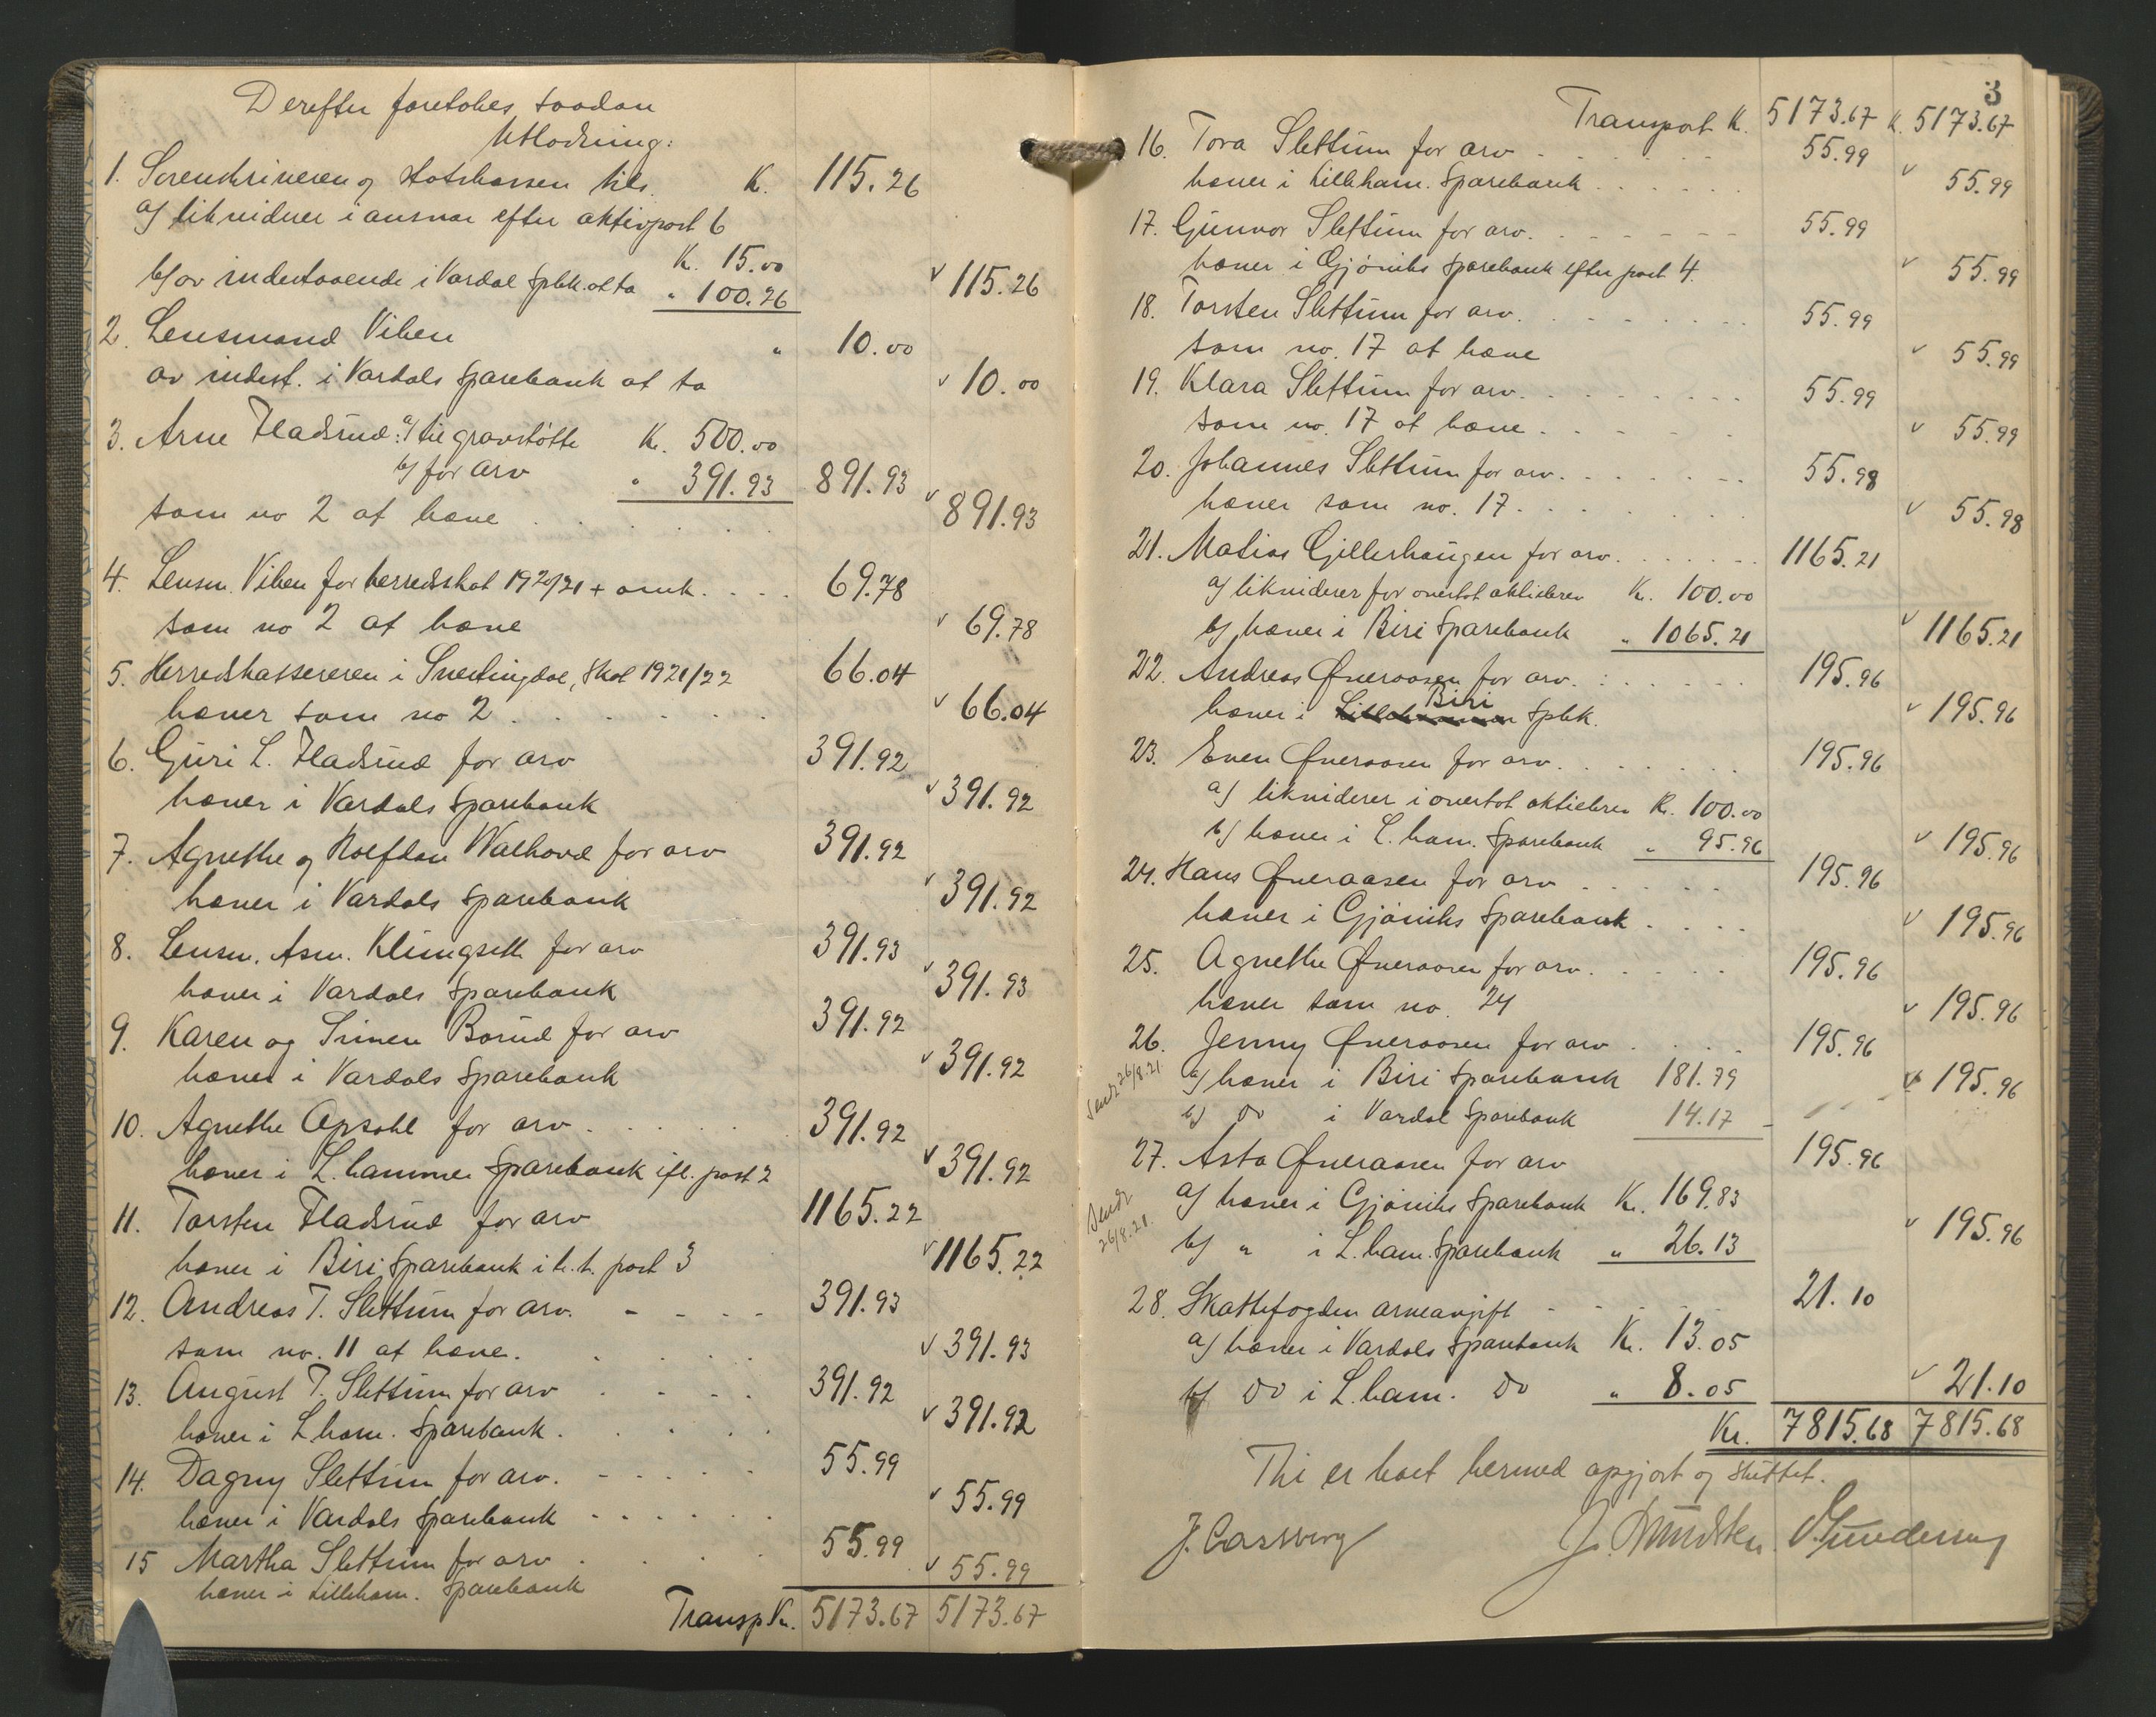 Derefter foretokes saadan
Utlodning:
1. Sorenskriveren og Statskassen tils. K. 115.26
a/ likviderer i ansvar efter aktivpost 6
K. 15.00
b/ av indestaaende i Vardal Spbk. at ta " 100.26 v 115.26
2. Lensmand Viken " 10.00
av indest. i Vardals Sparebank at ta v 10.00
3. Arne Fladsrud: a/ til gravstøtte Kr. 500.00
b/ for arv " 391.93 891.93
som no 2 at hæve . . . . . v 891.93
4. Lensm. Viken for herredsskat 1920/21 + omk. . . . 69.78
som no 2 at hæve v 69.78
5. Herredskassereren i Snertingdal, Skat 1921/22 66.04
hæver som no 2 . . . . . v 66.04
6. Guri L. Fladsrud for arv 391.92
hæver i Vardals Sparebank v 391.92
7. Agnethe og Rolfdan Walhovd for arv 391.92
hæver i Vardals Sparebank v 391.92
8. Lensm. Asm. Klungseth for arv 391.93
hæver i Vardals Sparebank v 391.93
9. Karen og Simen Borud for arv 391.92
hæver i Vardals Sparebank v 391.92
10. Agnethe Opsahl for arv . . . . . 391.92
hæver i L.hammer Sparebank ifl. post 2 v 391.92
11. Torsten Fladsrud for arv 1165.22
hæver i Biri Sparebank i h.t. post 3 v 1165.22
12. Andreas T. Slettum for arv. - - - - 391.93
som no. 11 at hæve. . . . . v 391.93
13. August T. Slettum for arv . . . . 391.92
hæver i L.ham. Sparebank . . . . v 391.92
14. Dagny Slettum for arv. - - - - 55.99
hæver i Vardals Sparebank - - - - - v 55.99
15 Martha Slettum for arv . . . . 55.99
hæver i Lilleham. Sparebank v 55.99
Transp Kr. 5173.67 5173.67
3
Transport K. 5173.67 K. 5173.67
16. Tora Slettum for arv . . . . . 55.99
hæver i Lilleham. Sparebank . . . . . v 55.99
17. Gunvor Slettum for arv. - - - - - - 55.99
hæver i Gjøviks Sparebank efter post 4. v 55.99
18. Torsten Slettum for arv. . . . . . . 55.99
som no. 17 at hæve v 55.99
19. Klara Slettum for arv. . . . . . . 55.99
som no. 17 at hæve . . . . . v 55.99
20. Johannes Slettum for arv. . . . . . 55.98
hæver som no. 17. . . . . . v 55.98
21. Matias Gillerhaugen for arv. . . . . . 1165.21
a/ likviderer for overtat aktiebrev Kr. 100.00
b/ hæver i Biri Sparebank " 1065.21 v 1165.21
22. Andreas Øveraasen for arv. . . . . . 195.96
hæver i Lillehammer Biri Spbk. v 195.96
23. Even Øveraasen for arv. . . . . . 195.96
a/ likviderer i overtat aktiebrev K. 100.00
b/ hæver i L.ham. Sparebank " 95.96 v 195.96
24. Hans Øveraasen for arv . . . . . 195.96
hæver i Gjøviks Sparebank . . . . v 195.96
25. Agnethe Øveraasen for arv. . . . . 195.96
hæver som no. 24 v 195.96
26. Jenny Øveraasen for arv . . . . 195.96
Sendt 26/8.21. a/ hæver i Biri Sparebank 181.79 v 195.96
b/ do i Vardal Sparebank 14.17
27. Asta Øveraasen for arv 195.96
Sendt 26/8.21. a/ hæver i Gjøviks Sparebank Kr. 169.83
b/ " i L.ham. Sparebank " 26.13 v 195.96
28. Skattefogden arveavgift - - - - 21.10
a/ hæver i Vardals Sparebank Kr. 13.05
b/ do i L.ham. do " 8.05 v 21.10
Kr. 7815.68 7815.68
Thi er boet hermed opgjort og sluttet.
J. Cassberg